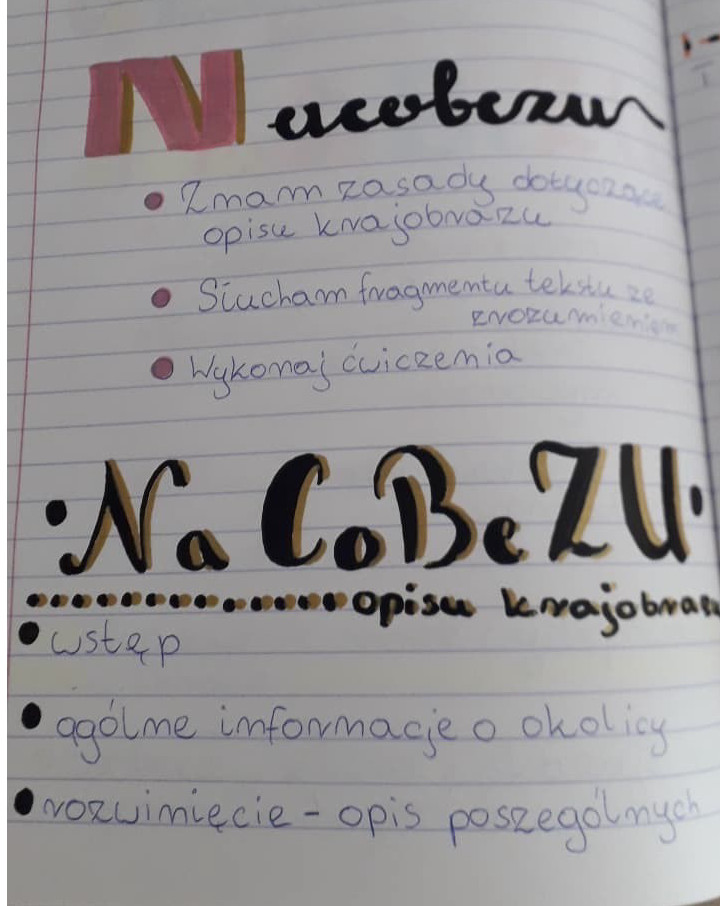 Nacobezu
• Znam zasady dotyczące
opisu krajobrazu
• Słucham fragmentu tekstu ze
zrozumieniem
• Wykonaj ćwiczenia
•Na CoBeZU•
opisu krajobrazu
• wstęp
• ągólne informacje o okolicy
• rozwinięcie - opis poszególnych